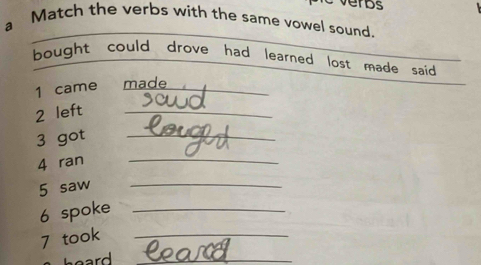 verbs
a Match the verbs with the same vowel sound.
bought could drove had learned lost made said
1 came made
2 left said
3 got
4 ran
5 saw
6 spoke
7 took
heard